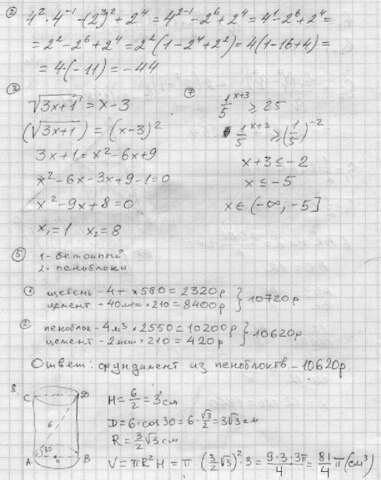 ② 4² · 4⁻¹ - (2³)² + 2⁴ = 4²⁻¹ - 2⁶ + 2⁴ = 4¹ - 2⁶ + 2⁴ =
= 2² - 2⁶ + 2⁴ = 2²(1 - 2⁴ + 2²) = 4(1 - 16 + 4) =
= 4(-11) = -44
③
√3x+1 = x-3
(√3x+1) = (x-3)²
3x+1 = x²-6x+9
x²-6x-3x+9-1=0
x²-9x+8=0
x₁=1 x₂=8
④
1/5^x+3 ≥ 25
1/5^x+3 ≥ (1/5)⁻²
x+3 ≤ -2
x ≤ -5
x ∈ (-∞, -5]
⑤ 1 - бетонный
2 - пеноблоки
① щебень - 4т × 580 = 2320р
цемент - 40меш × 210 = 8400р } 10720р
② пеноблок - 4м³ × 2550 = 10200р
цемент - 2меш × 210 = 420р } 10620р
Ответ: фундамент из пеноблоков - 10620р
8
C D
6
30°
A B
H = 6/2 = 3см
D = 6·cos30 = 6·√3/2 = 3√3см
R = 3/2√3см
V = πR²H = π (3/2√3)²·3 = 9·3·3π/4 = 81/4 π (см³)